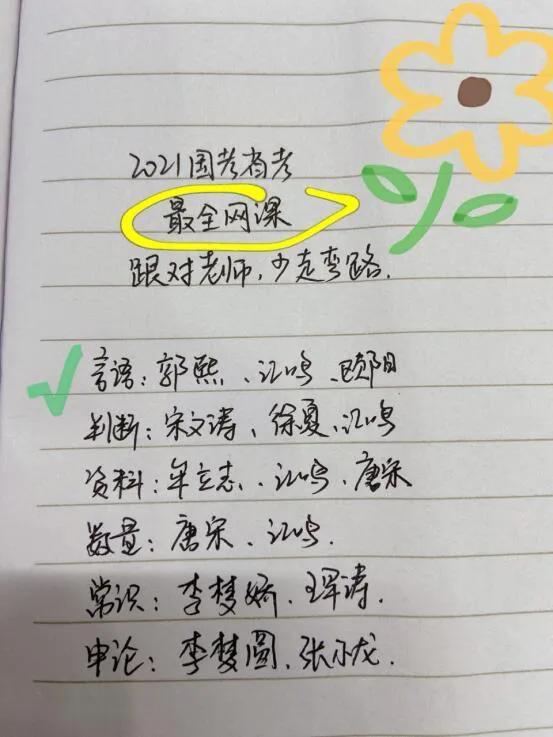 2021国考省考
最全网课
跟对老师,少走弯路.
言语:郭熙、江鸣、欧阳
判断:宋文涛、徐夏、江鸣
资料:牟立志、江鸣、唐宋
数量:唐宋、江鸣.
常识:李梦娇、珲涛.
申论:李梦圆、张小龙.